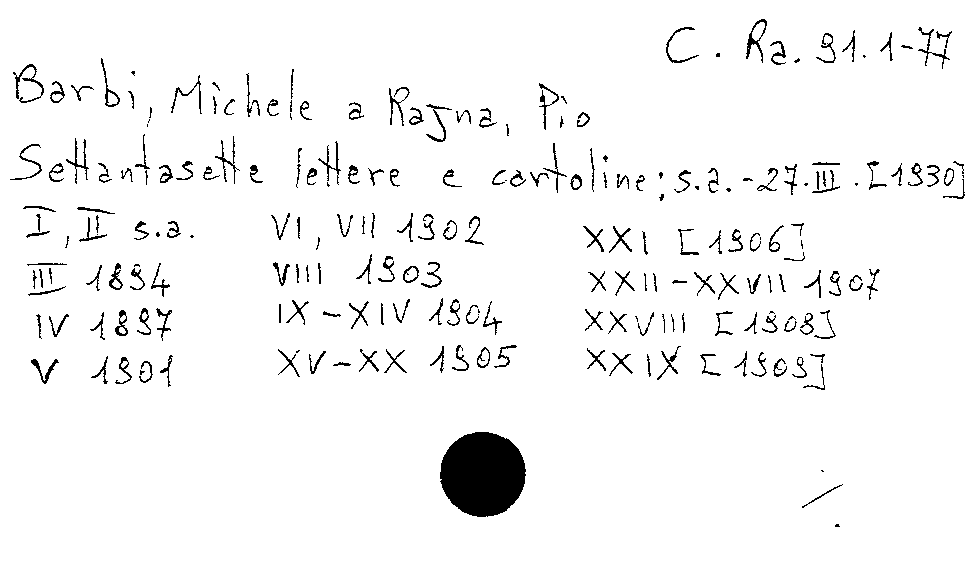 C. Ra. 91. 1-77
Barbi, Michele a Rajna, Pio
Settantasette lettere e cartoline; s.a. - 27. III. [1930]
I, II s.a.
III 1894
IV 1897
V 1901
VI, VII 1902
VIII 1903
IX - XIV 1904
XV - XX 1905
XXI [1906]
XXII - XXVII 1907
XXVIII [1908]
XXIX [1909]
./.